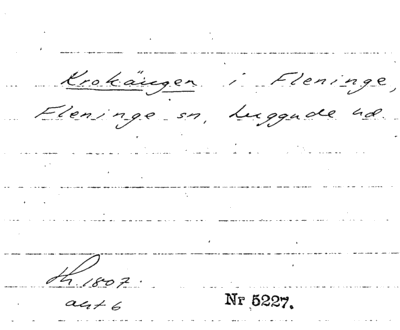 Krokängen i Fleninge,
Fleninge sn, Luggude hd.
Th 1807.
akt 6
Nr 5227.